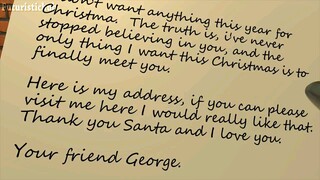 Futuristic
want anything this year for
Christma. The truth is, i've never
stopped believing in you, and the
only thing I want this Christmas is to
finally meet you.
Here is my address, if you can please
visit me here I would really like that.
Thank you Santa and I love you.
Your friend George.